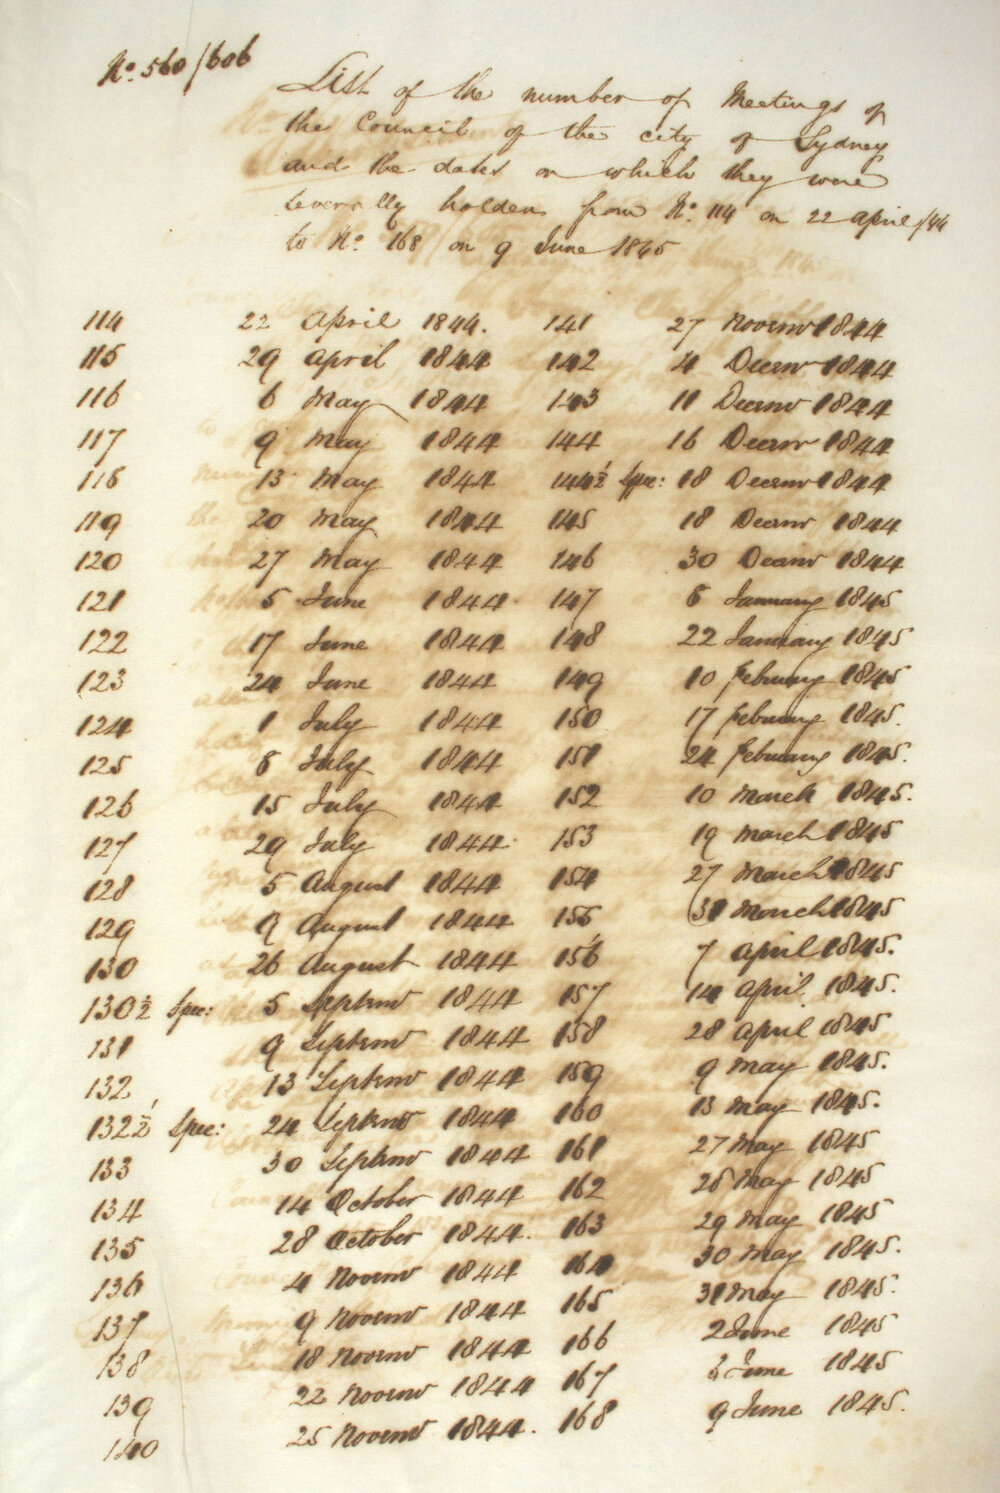 No. 560/606
List of the number of Meetings of
the Council of the city of Sydney
and the dates on which they were
severally holden from No. 114 on 22 april/44
to No. 168 on 9 June 1845
114 22 April 1844. 141 27 Novemr 1844
115 29 April 1844 142 4 Decemr 1844
116 6 May 1844 143 11 Decemr 1844
117 9 May 1844 144 16 Decemr 1844
118 13 May 1844 144½ Spec: 18 Decemr 1844
119 20 May 1844 145 18 Decemr 1844
120 27 May 1844 146 30 Decemr 1844
121 5 June 1844 147 6 January 1845
122 17 June 1844 148 22 January 1845
123 24 June 1844 149 10 February 1845
124 1 July 1844 150 17 February 1845.
125 8 July 1844 151 24 February 1845.
126 15 July 1844 152 10 March 1845.
127 29 July 1844 153 19 March 1845
128 5 August 1844 154 27 March 1845
129 9 August 1844 155 31 March 1845
130 26 August 1844 156 7 April 1845.
130½ Spec: 5 Septemr 1844 157 14 April 1845.
131 9 Septemr 1844 158 28 April 1845
132 13 Septemr 1844 159 9 May 1845.
132½ Spec: 24 Septemr 1844 160 13 May 1845.
133 30 Septemr 1844 161 27 May 1845
134 14 October 1844 162 28 May 1845
135 28 October 1844. 163 29 May 1845
136 4 Novemr 1844 164 30 May 1845.
137 9 Novemr 1844 165 31 May 1845.
138 18 Novemr 1844 166 2 June 1845
139 22 Novemr 1844 167 June 1845
140 25 Novemr 1844. 168 9 June 1845.